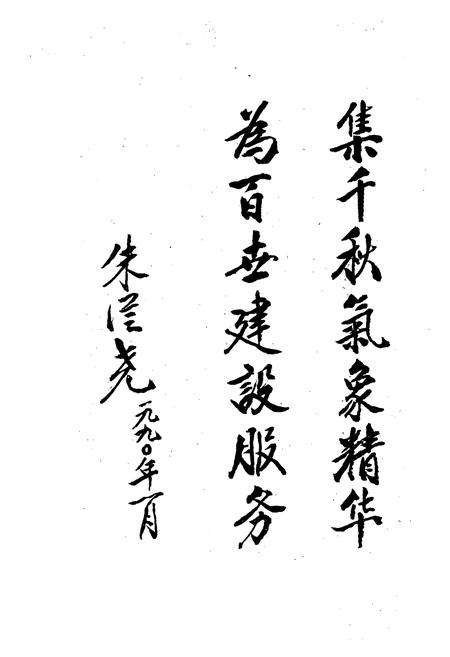 集千秋氣象精华
為百世建設服务
朱从尧
一九九〇年一月